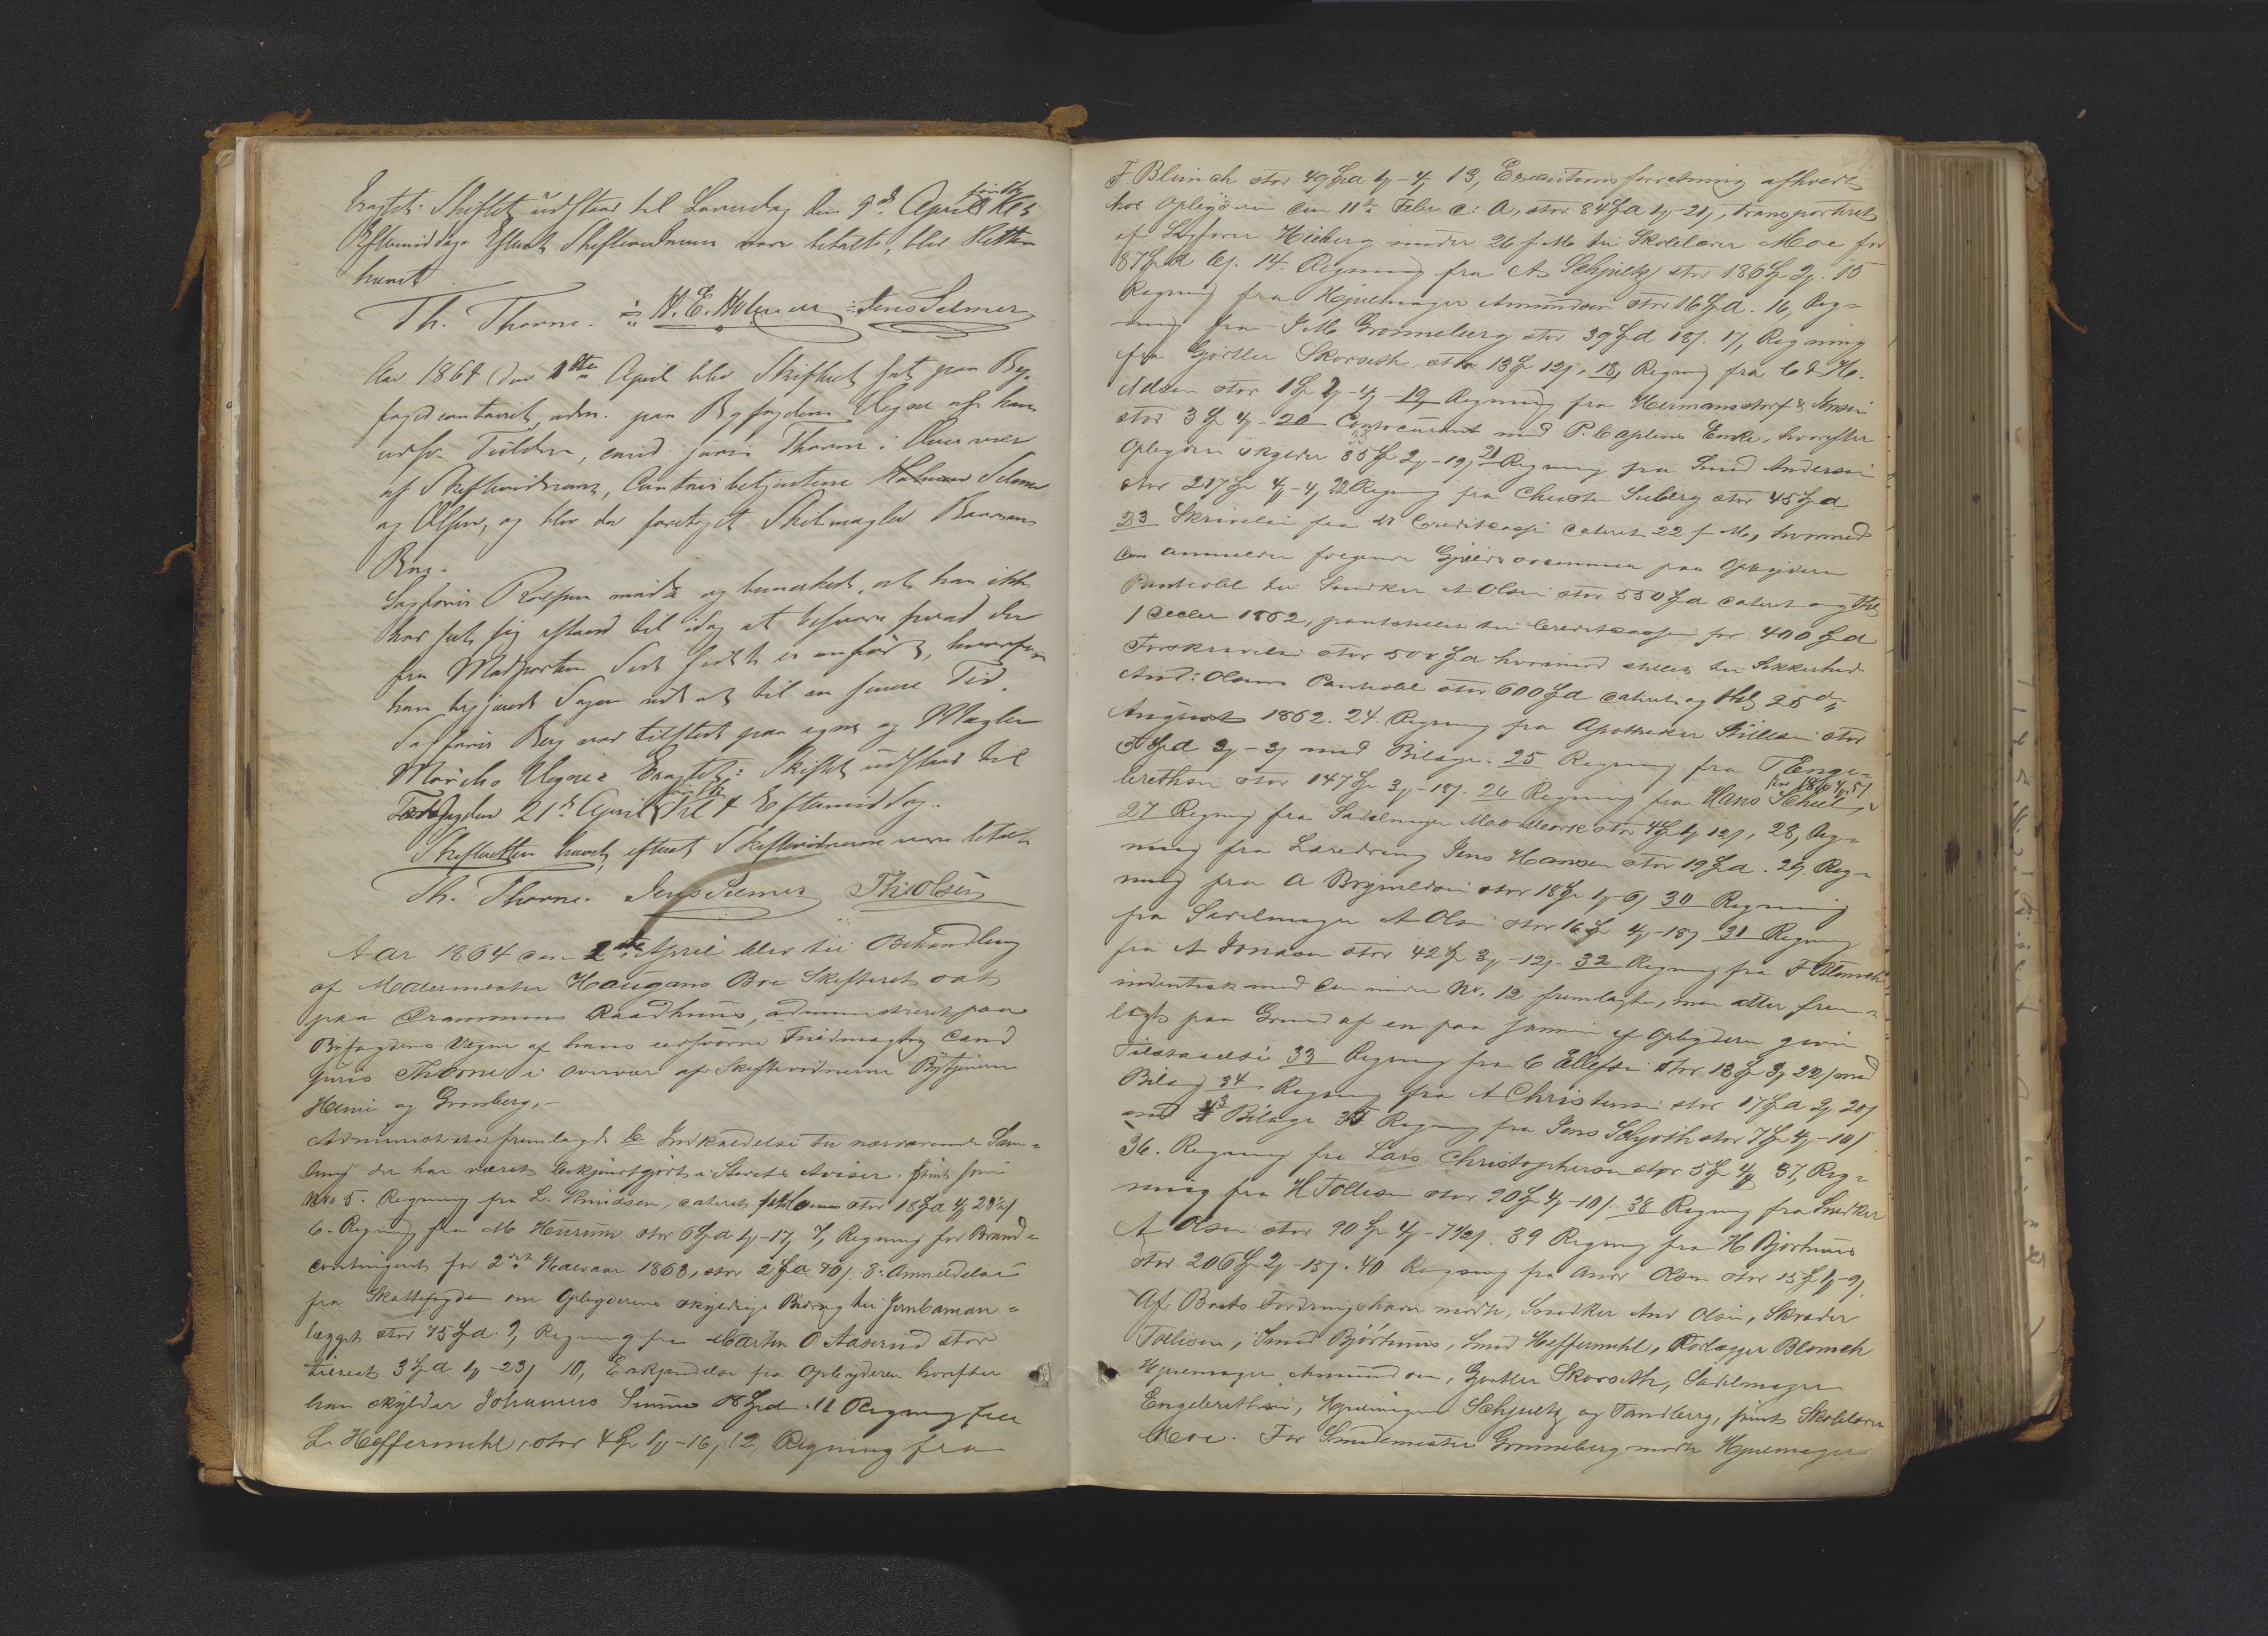 Eragtet: Skiftet udstaar til Løverdag den 9de April Kl 5
Eftermiddag. Efterat Skiftevidnerne vare betalte, blev Retten
hævet.
Th. Thorne. H. E. Holmen Jens Selmer
Aar 1864 den 1ste April blev Skifteret sat paa By-
fogedcontoiret, adm. paa Byfogdens Vegne af hans
edsv. Fuldm, cand. juris Thorne i Overvær
af Skiftevidnerne, Contoirbetjentene Selmer
og Olsen, og blev da foretaget Skibmægler
Boe.
Sagfører Rolfsen mødte og bemærkede, at han ikke
har seet sig istand til idag at besvare hvad der
fra Modparten Side sidst er anført, hvorfor
han begjærede Sagen udsat til en senere Tid.
Sagfører Berg var tilstede paa egne og Mægler
Mørchs Vegne. Eragtet: Skiftet udstaar til
Torsdag den 21de April Kl 4 Eftermiddag.
Skifteretten hævet, efterat Skiftevidnerne vare betalte
Th. Thorne. Jens Selmer Th. Olsen
Aar 1864 den 2den April blev til Behandling
af Malermester Haugans Boe Skifteret sat
paa Drammens Raadhuus, administreret paa
Byfogdens Vegne af hans edsvorne Fuldmægtig Cand
juris Thorne i Overvær af Skiftevidnerne Bytjenerne
og Gronberg.-
Administrator fremlagde Indkaldelse til nærværende Sam-
ling der har været bekjendtgjort i Stedets Aviser. samt som
No 5. Regning fra L. Knudsen, dateret stor 18 Spd 4
6. Regning fra M Hurum stor 6 Spd 1 - 17, 7, Regning for Brand-
contingent for 2det Halvaar 1863, stor 2 Spd 8. Anmeldelse
fra Skattefogden om Opbyderens skyldige Bidrag til Jernbanean-
lægget stor 75 Spd. 9, Regning fra Martin O Aaserud stor
3 Spd 1 - 23 10, Erkjendelse fra Opbyderen hvorefter
han skylder Johannes Spd. 11 Regning fra
L. Heffermehl, stor 4 Sp 1 - 16, 12, Regning fra
F Blimch stor 49 Spd 1 - 4, 13, Executionsforretning afholdt
hos Opbyderen den 11te Febr d: A, stor 84 Spd 1 - 21, transporteret
af Sagfører Hieberg under 26 f M til Skolelærer Moe for
87 Spd 14. Regning fra A Schjeltz stor 186 Sp 2. 15
Regning fra Hjulmager Amundsen stor 16 Spd. 16, Reg-
ning fra J M Gronneberg stor 39 Spd 18. 17, Regning
fra Gørtler Skorseth stor 13 Sp 12, 18, Regning fra
Nilsen stor 1 Sp 2 - 4 19 Regning fra Hermanstorf & Jensen
stor 3 Sp 4 - 20 Contocurant med P. Caplens Enke, hvorefter
Opbyderen skylder 85 Sp 2 - 19, 21 Regning fra Smed Andersen
stor 217 Sp 4 - 4, 22 Regning fra Christen Seeberg stor 45 Spd
23 Skrivelse fra Creditcasse dateret 22 f. M., hvorved
den anmelder følgende Gjeldsdocumenter paa Opbyderen
Panteobl til Snedker A Olsen stor 550 Spd dateret og thl
1 Decbr 1862, pantsættes til Creditcassen for 400 Spd
Forskrivelse stor 500 Spd hvorimod stillet til Sikkerhed
And: Olsens Panteobl stor 600 Spd dateret og thl 26de
August 1862. 24. Regning fra Apotheker stor
3 Spd 3 - 3 med Bilage. 25 Regning fra T Enge-
brethsen stor 147 Sp 3 - 18. 26 Regning fra Hans
27 Regning fra Sadelmager stor 4 Sp 1 12, 28, Reg-
ning fra Jens Hansen stor 19 Spd. 29. Reg-
ning fra A Brynildsen stor 18 Sp 1 - 6 30 Regning
fra Sadelmager A Olsen stor 16 Sp 4 - 18 31 Regning
fra A Jonasen stor 42 Sp 3 - 12. 32 Regning fra F Blimch
indentisk med den under No. 12 fremlagte, men atter frem-
lagt paa Grund af en paa samme af Opbyderen given
Tilstaaelse 33 Regning fra C Ellefsen stor 13 Sp 3 22 med
Bilag 34 Regning fra A Christensen stor 17 Spd 2 20
med 3 Bilage 35 Regning fra Jens Schjøth stor 7 Sp 4 - 10
36. Regning fra Lars Christophersen stor 5 Sp 4 37, Reg-
ning fra H Tollesen stor 90 Sp 4 - 10 38 Regning fra Snedker
A Olsen stor 90 Sp 4 - 7 1/2. 39 Regning fra H Bjørhuus
stor 206 Sp 2 - 15. 40 Regning fra Andr Olsen stor 15 Sp 1 - 9.
Af Boets Fordringshavere mødte, Snedker And Olsen, Skræder
Tollesen, Smed Bjørhuus, Smed Heffermehl, Blomch
Hjulmager Amundsen, Gørtler Skorseth, Sadelmager
Engebrethsen, Schjeltz og Tandberg, samt Skolelærer
Moe. For Smedemester Gronneberg mødte Hjulmager